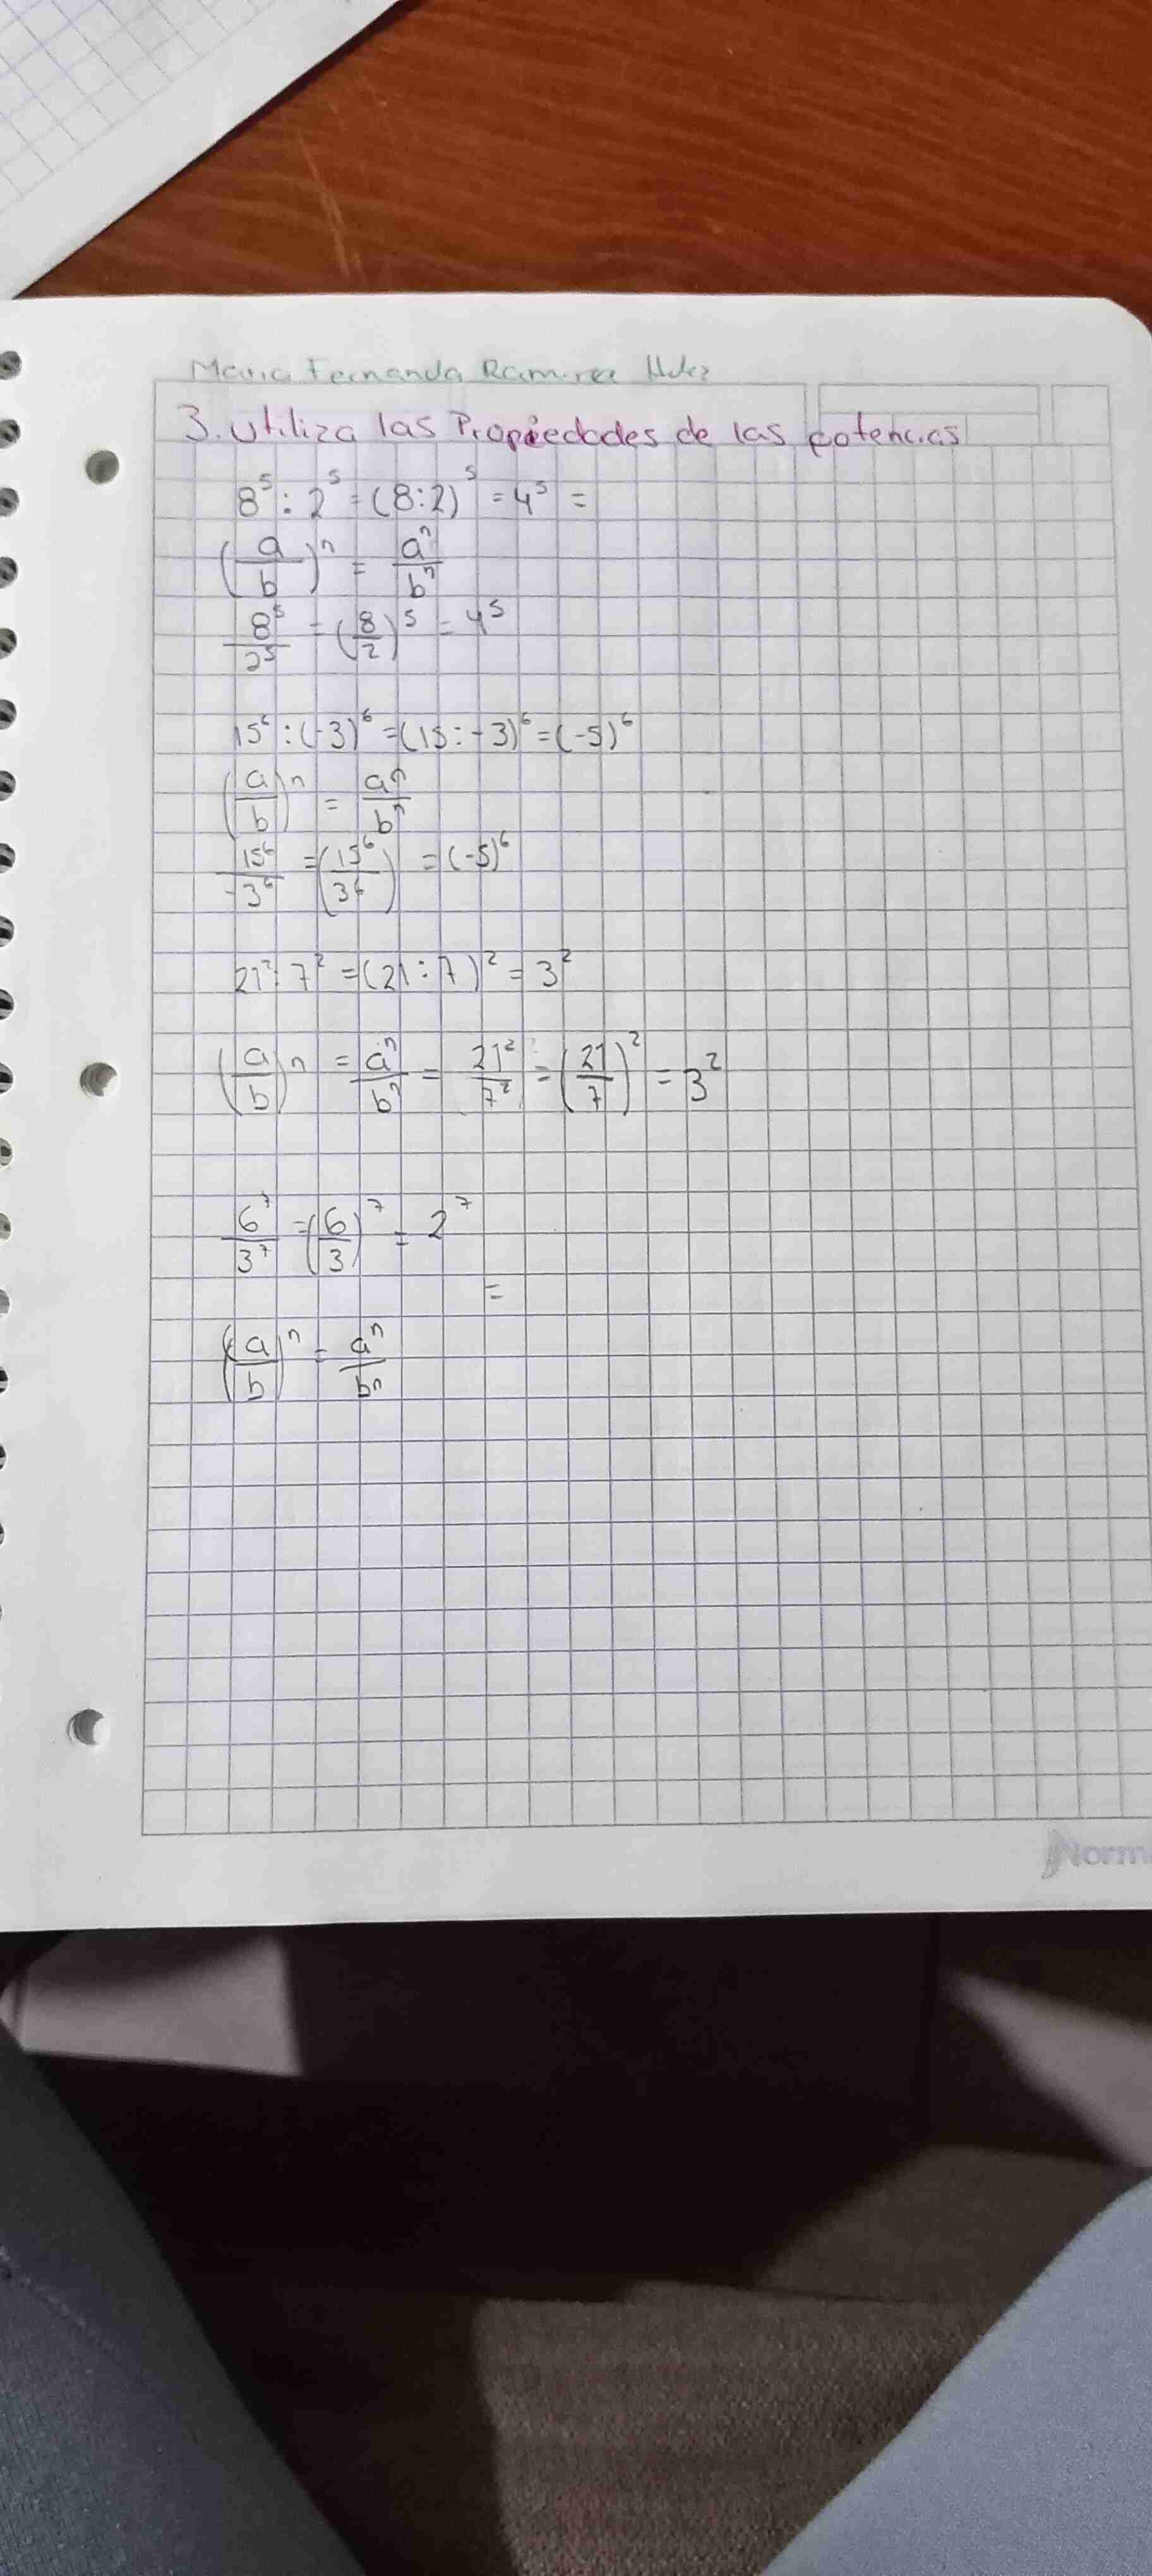 Maria Fernanda Ramirez Hdez
3. Utiliza las Propiedades de las potencias
8⁵ : 2⁵ = (8:2)⁵ = 4⁵ =
(a/b)ⁿ = aⁿ/bⁿ
8⁵/2⁵ = (8/2)⁵ = 4⁵
15⁶ : (-3)⁶ = (15 : -3)⁶ = (-5)⁶
(a/b)ⁿ = aⁿ/bⁿ
15⁶/-3⁶ = (15⁶/3⁶) = (-5)⁶
21² : 7² = (21 : 7)² = 3²
(a/b)ⁿ = aⁿ/bⁿ = 21²/7² = (21/7)² = 3²
6⁷/3⁷ = (6/3)⁷ = 2⁷
=
(a/b)ⁿ = aⁿ/bⁿ
Norm